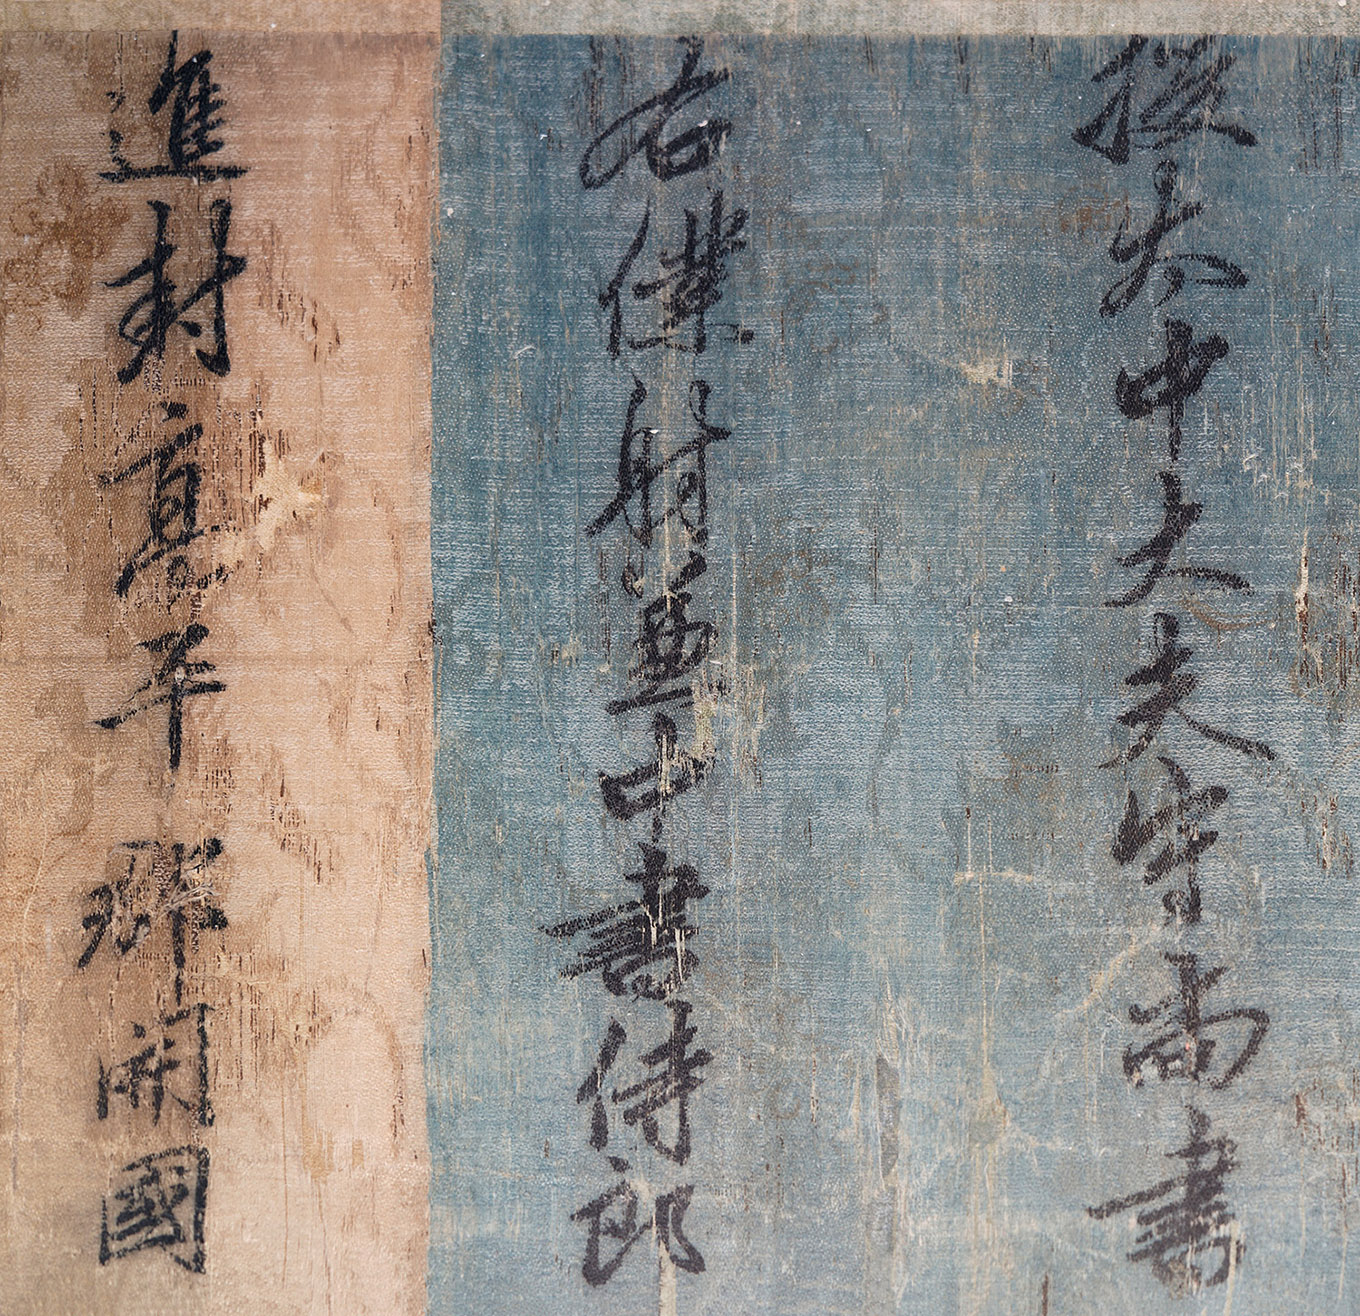 授太中大夫守尚書
右僕射兼中書侍郎
進封高平郡開國